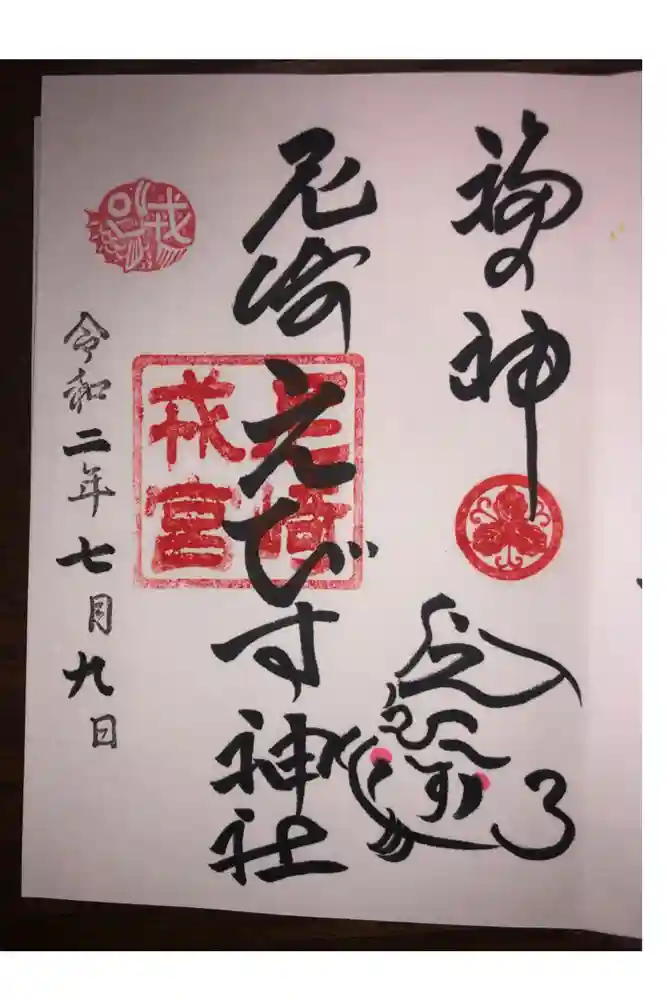 福の神
尼崎えびす神社
尼崎
戎宮
戎
令和二年七月九日